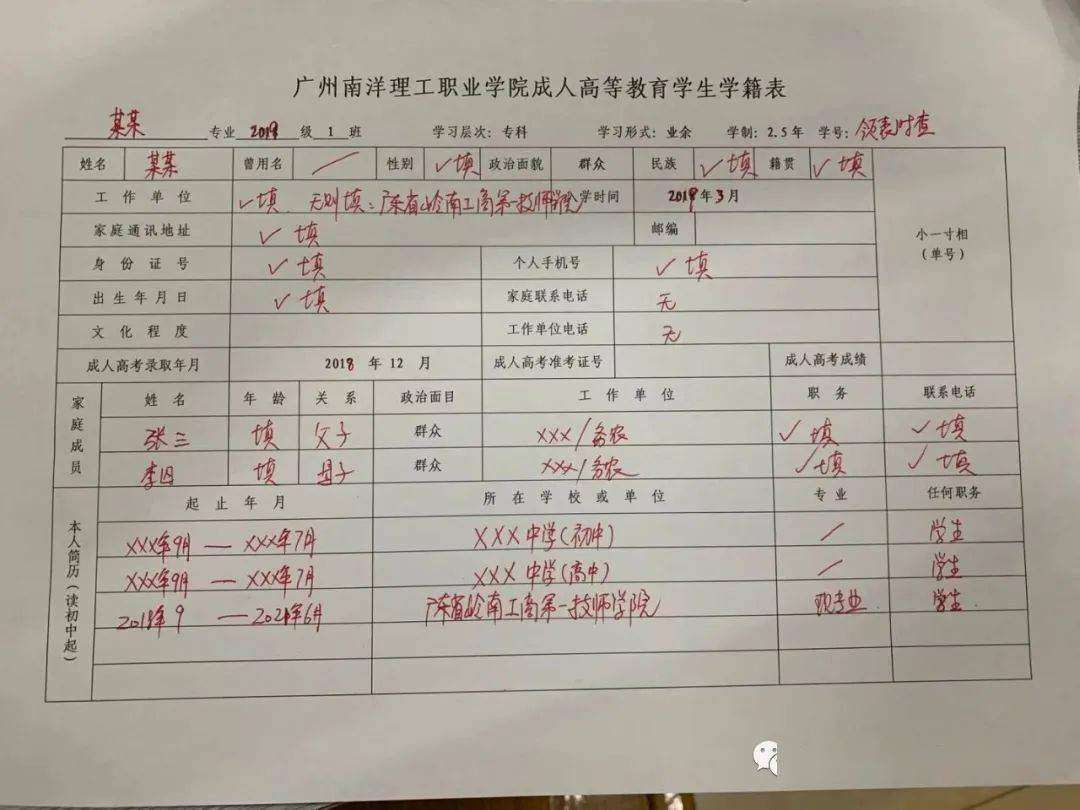 广州南洋理工职业学院成人高等教育学生学籍表
某某 专业 2019 级 1 班 学习层次：专科 学习形式：业余 学制：2.5年 学号：领表时查
姓名 某某 曾用名 / 性别 ✓填 政治面貌 群众 民族 ✓填 籍贯 ✓填
工作单位 ✓填、无则填：广东省岭南工商第一技师学院 学时间 2019年3月
小一寸相
（单号）
家庭通讯地址 ✓填 邮编
身份证号 ✓填 个人手机号 ✓填
出生年月日 ✓填 家庭联系电话 无
文化程度 工作单位电话 无
成人高考录取年月 2018 年 12 月 成人高考准考证号 成人高考成绩
家庭成员 姓名 年龄 关系 政治面目 工作单位 职务 联系电话
张三 填 父子 群众 xxx/务农 ✓填 ✓填
李四 填 母子 群众 xxx/务农 ✓填 ✓填
本人简历（读初中起） 起止年月 所在学校或单位 专业 任何职务
XXX年9月 — XXX年7月 XXX中学（初中） / 学生
XXX年9月 — XXX年7月 XXX中学（高中） / 学生
2018年9 — 2021年6月 广东省岭南工商第一技师学院 现专业 学生